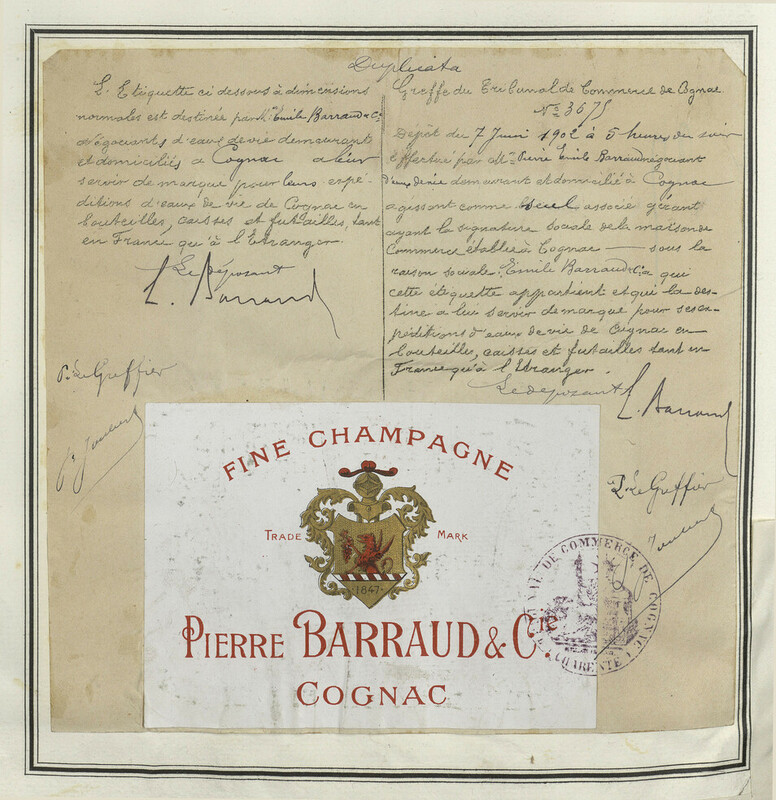 Duplicata
L'Etiquette ci dessous à dimensions
normales est destinée par Mr Emile Barraud & Cie
négociants d'eaux de vie demeurant
et domiciliés à Cognac à leur
servir de marque pour leurs expé-
ditions d'eaux de vie de Cognac en
bouteilles, caisses et futailles, tant
en France qu'à l'Etranger.
Le déposant
E. Barraud
P. Le Greffier
Greffe du Tribunal de Commerce de Cognac
No 3675
Dépôt du 7 Juin 1902 à 5 heures du soir
effectué par Mr Pierre Emile Barraud négociant
d'eaux de vie demeurant et domicilié à Cognac
agissant comme seul associé gérant
ayant la signature sociale de la maison de
Commerce établie à Cognac — sous la
raison sociale: Emile Barraud & Cie à qui
cette étiquette appartient et qui la des-
tine à lui servir de marque pour ses ex-
péditions d'eaux de vie de Cognac en
bouteilles, caisses et futailles tant en
France qu'à l'Etranger.
Le déposant
E. Barraud
P. Le Greffier
FINE CHAMPAGNE
TRADE MARK
1847
PIERRE BARRAUD & Cie.
COGNAC
TRIBUNAL DE COMMERCE DE COGNAC
CHARENTE